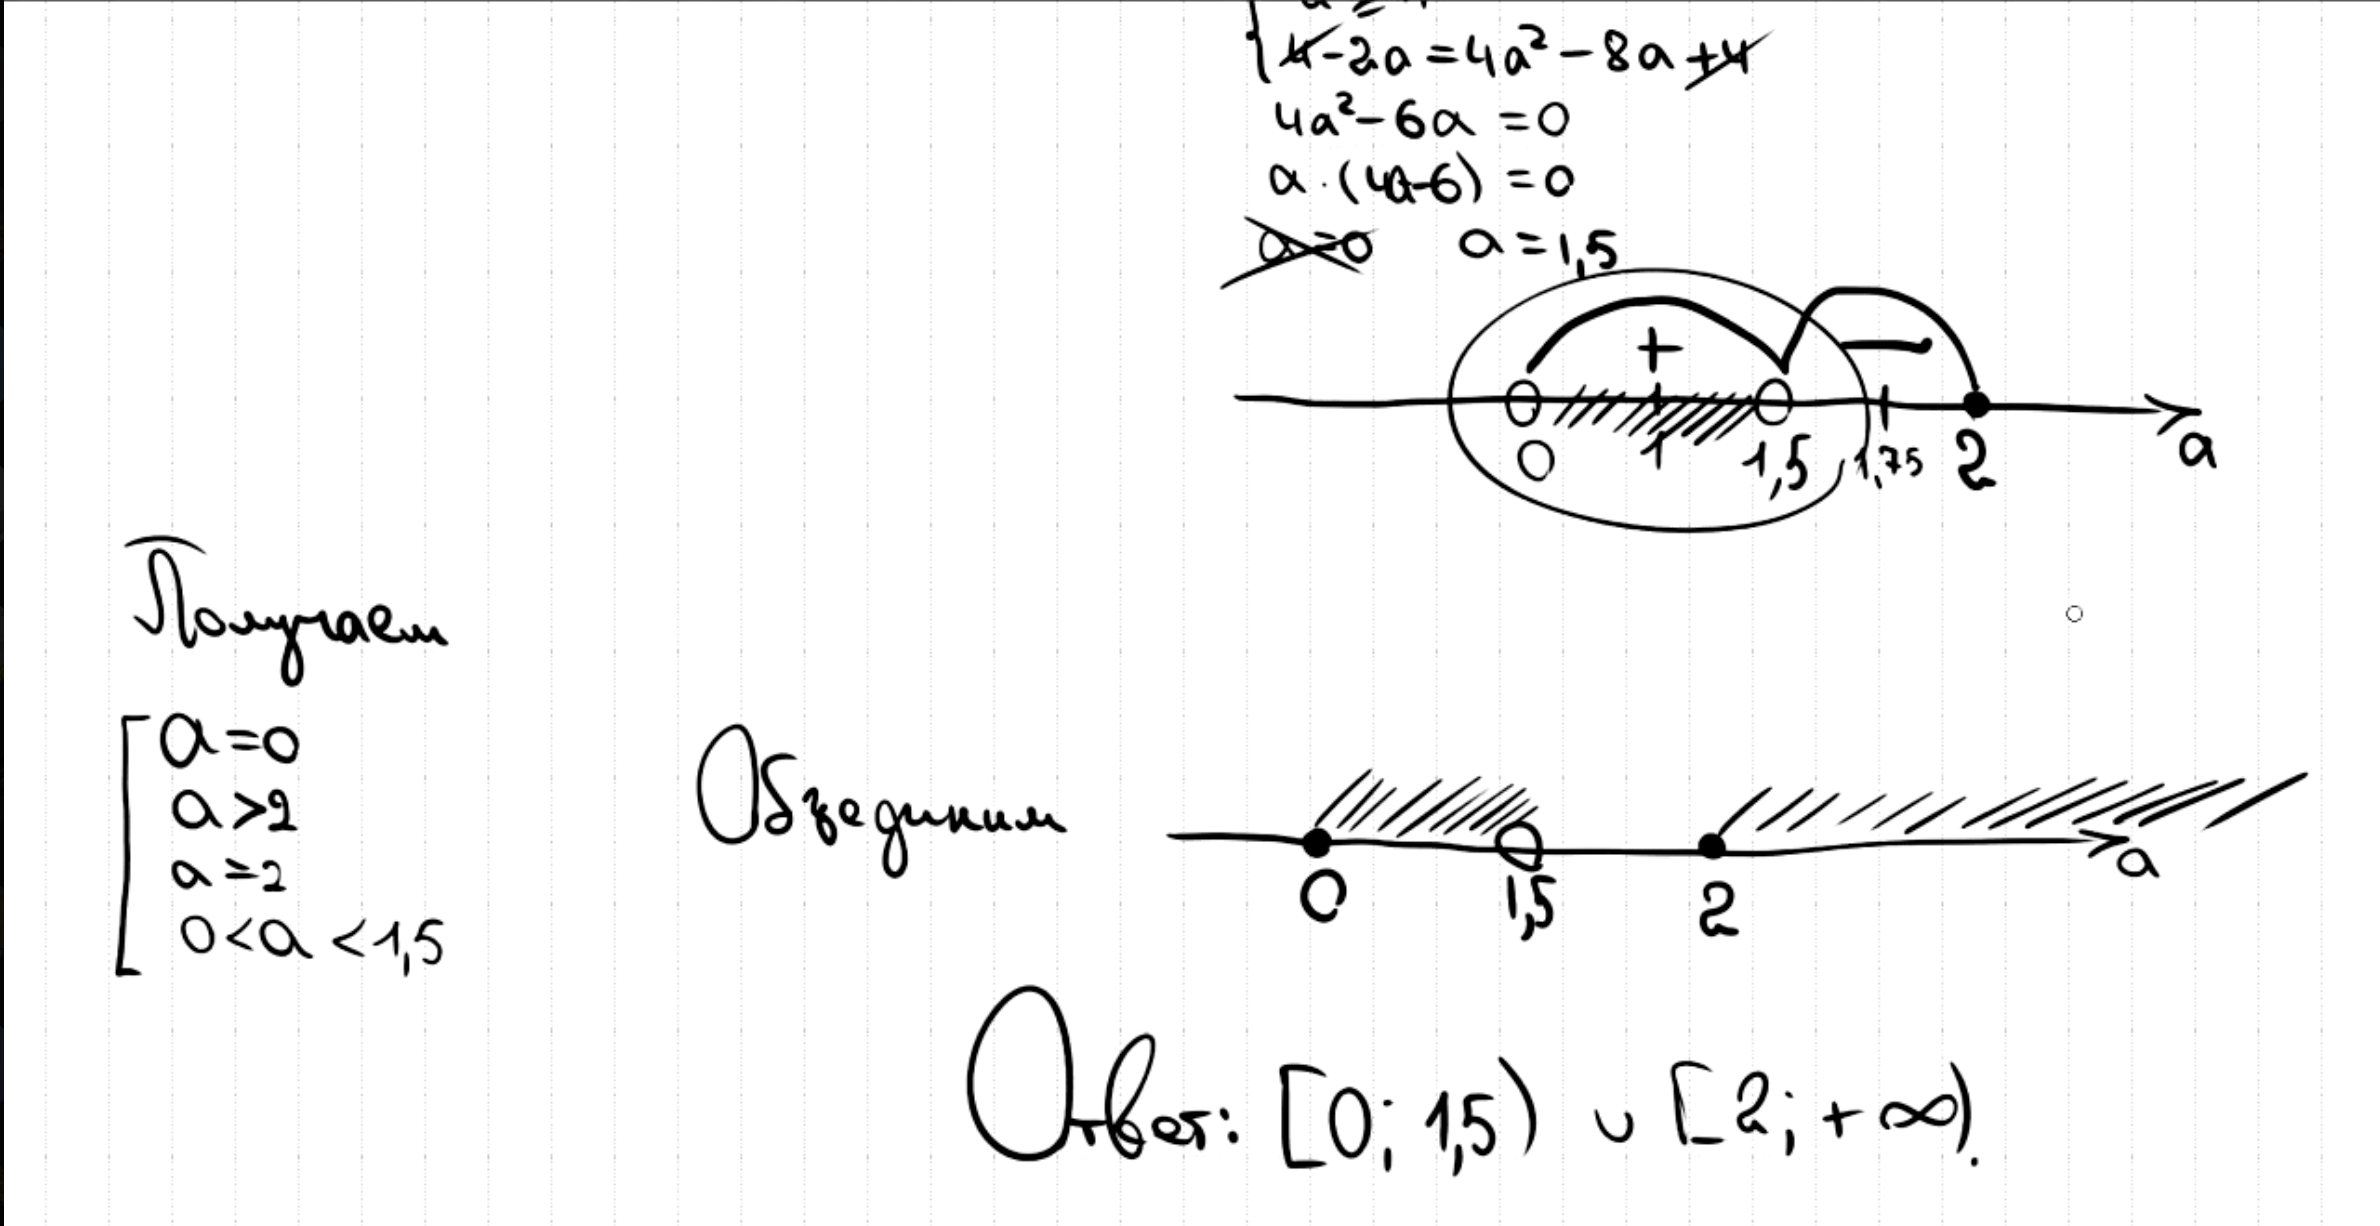 4-2a=4a²-8a+4
4a²-6a=0
a·(4a-6)=0
a=0 a=1,5
+ −
0 1 1,5 1,75 2 a
Получаем
a=0
a>2
a=2
0<a<1,5
Объединим
0 1,5 2 a
Ответ: [0; 1,5) ∪ [2; +∞).